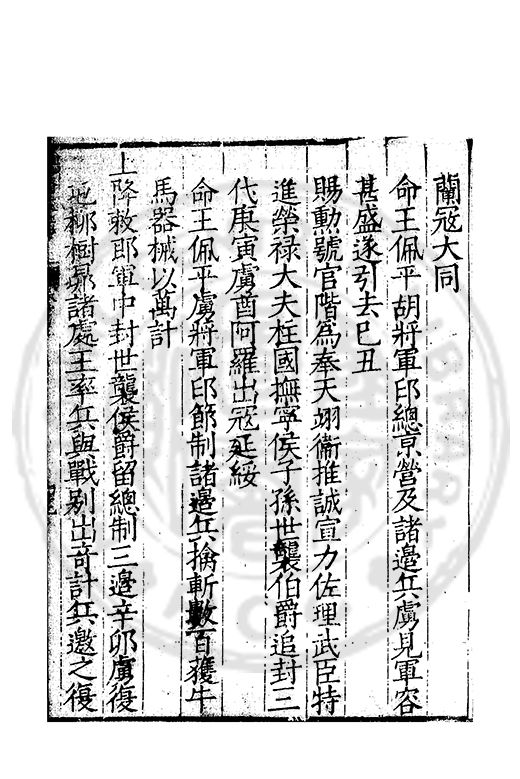 蘭寇大同
命王佩平胡將軍印總京營及諸邊兵虜見軍容
甚盛遂引去己丑
賜勲號官階為奉天翊衞推誠宣力佐理武臣特
進榮禄大夫柱國撫寧侯子孫世襲伯爵追封三
代庚寅虜酋阿羅出寇延綏
命王佩平虜將軍印節制諸邊兵擒斬數百獲牛
馬器械以萬計
上降敕即軍中封世襲侯爵留總制三邊辛卯虜復
地柳樹㵎諸處王率兵與戰别出奇計兵邀之復